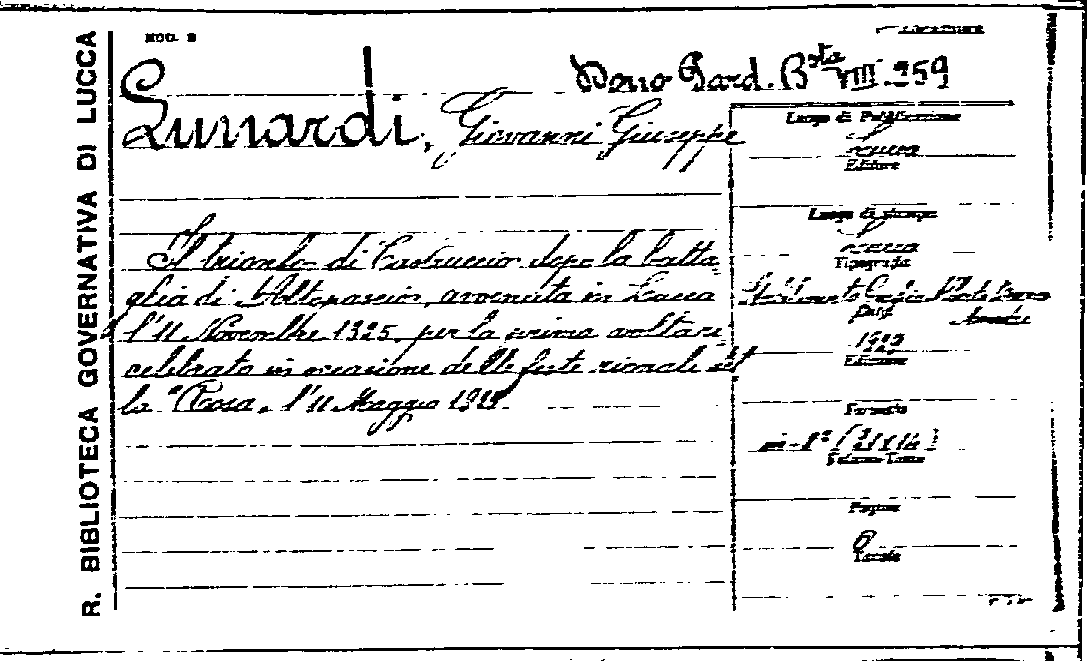 R. BIBLIOTECA GOVERNATIVA DI LUCCA
MOD. B
Dono Sard. Bsta VIII. 259
Lunardi, Giovanni Giuseppe
Il trionfo di Castruccio dopo la batta
glia di Altopascio, avvenuta in Lucca
l'11 Novembre 1325, per la prima volta ri
celebrato in occasione delle feste rionali del
la "Rosa, l'11 Maggio
Luogo di Pubblicazione
Lucca
Editore
Luogo di stampa
Lucca
Tipografia
Stabilimento
Data
Edizione
Formato
in-8°
Volume-Tomo
Pagine
8
Tavole